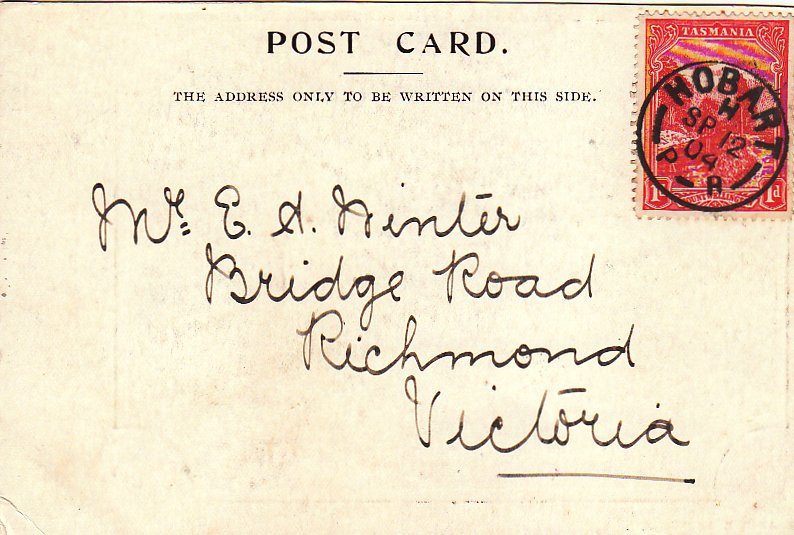 POST CARD.
THE ADDRESS ONLY TO BE WRITTEN ON THIS SIDE.
TASMANIA
HOBART
H
SP 12
04
P R
1d 1d
Mr. E. A. Winter
Bridge Road
Richmond
Victoria